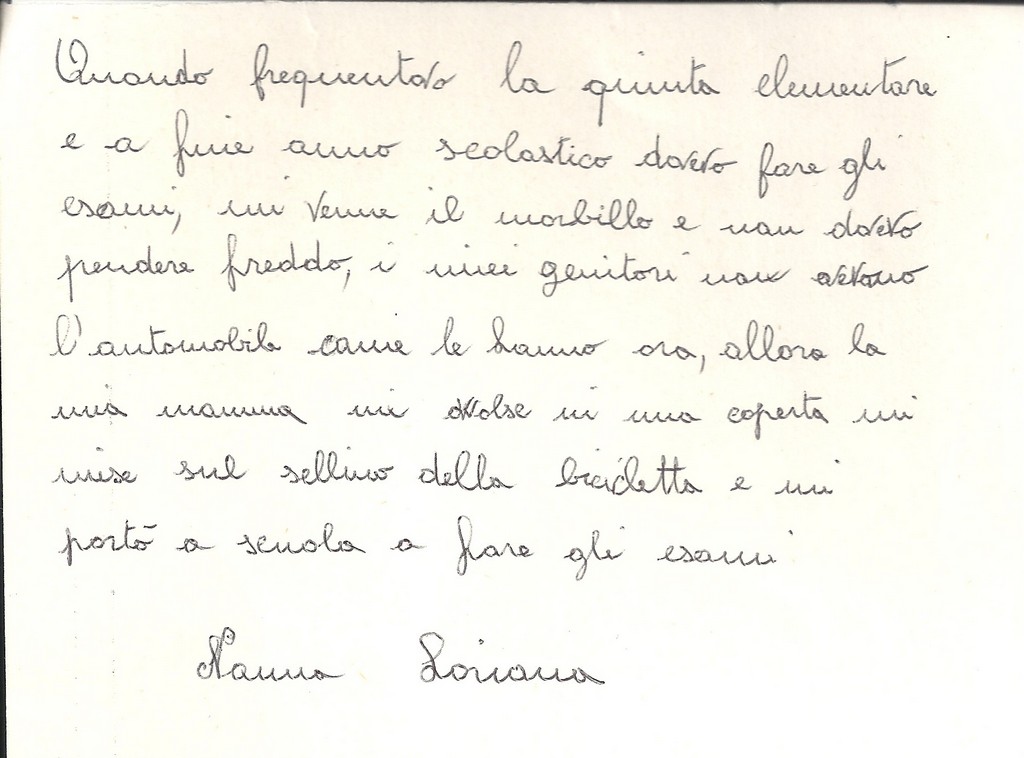 Quando frequentavo la quinta elementare
e a fine anno scolastico dovevo fare gli
esami, mi venne il morbillo e non dovevo
pendere freddo, i miei genitori non avevano
l'automobile come le hanno ora, allora la
mia mamma mi avvolse in una coperta mi
mise sul sellino della bicicletta e mi
portò a scuola a fare gli esami
Nonna Loriana